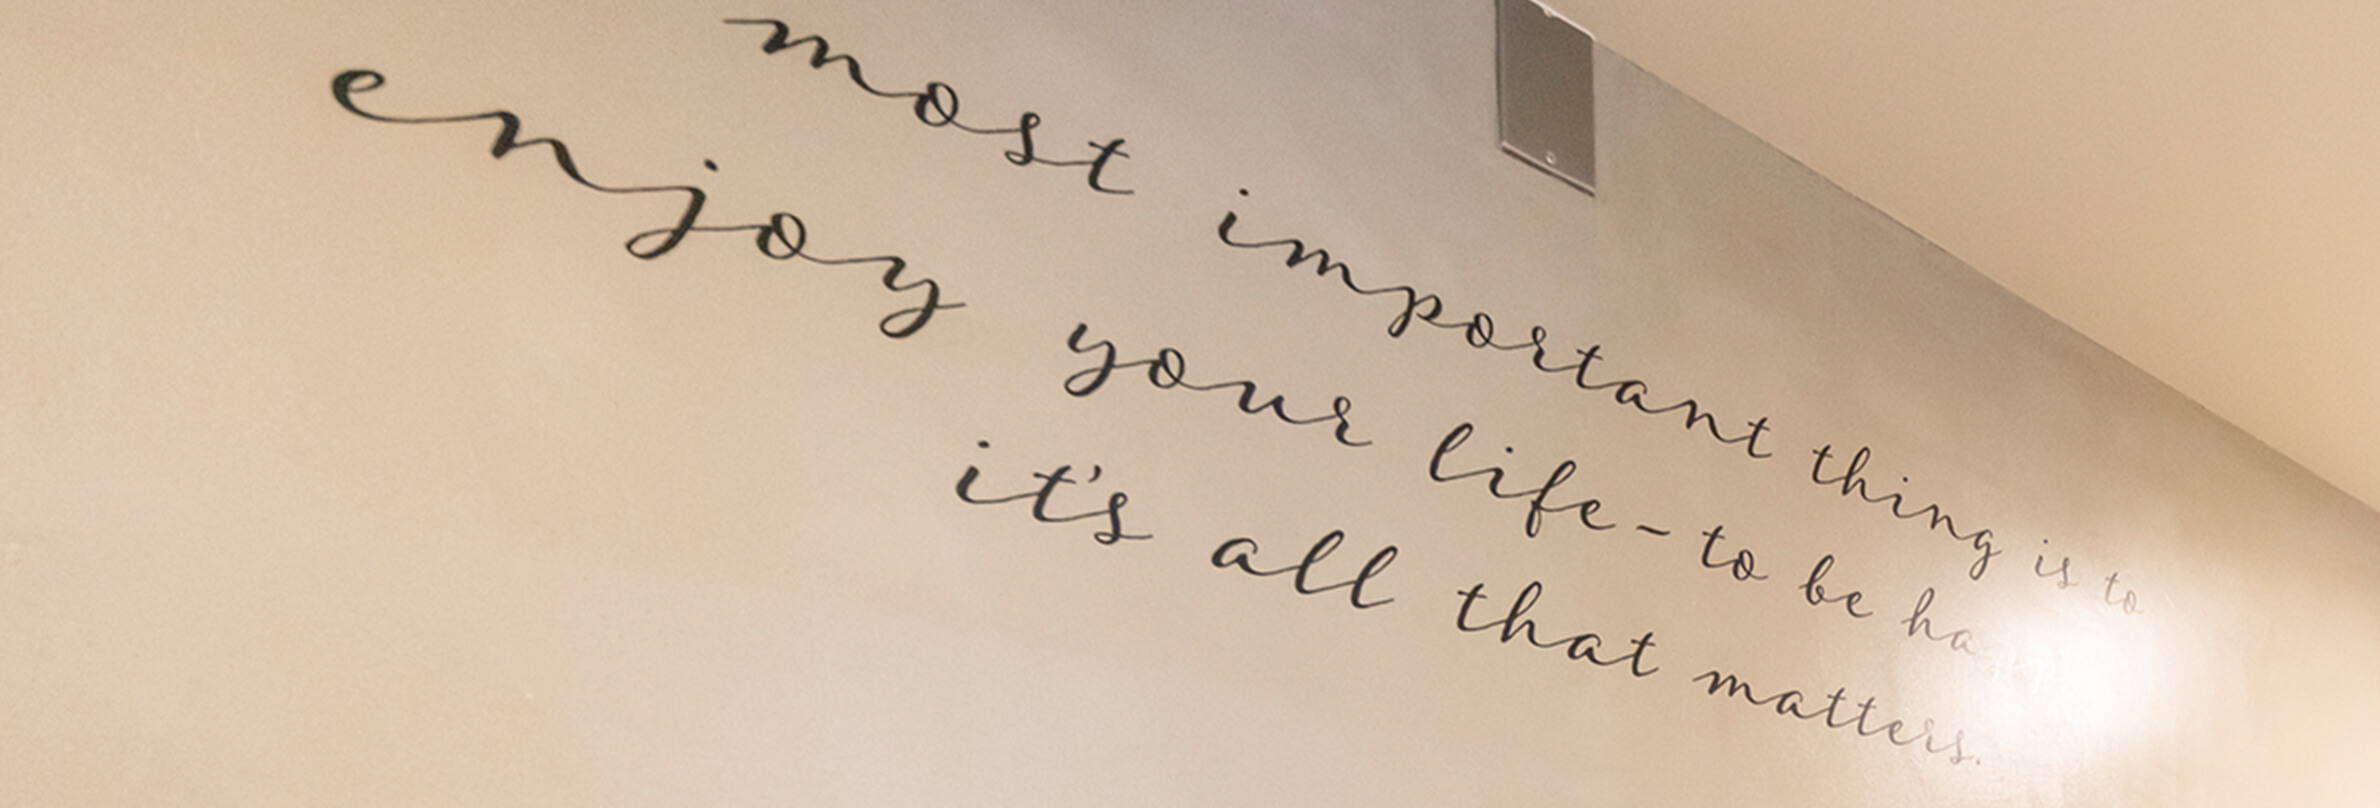 most important thing is to
enjoy your life - to be
it's all that matters.